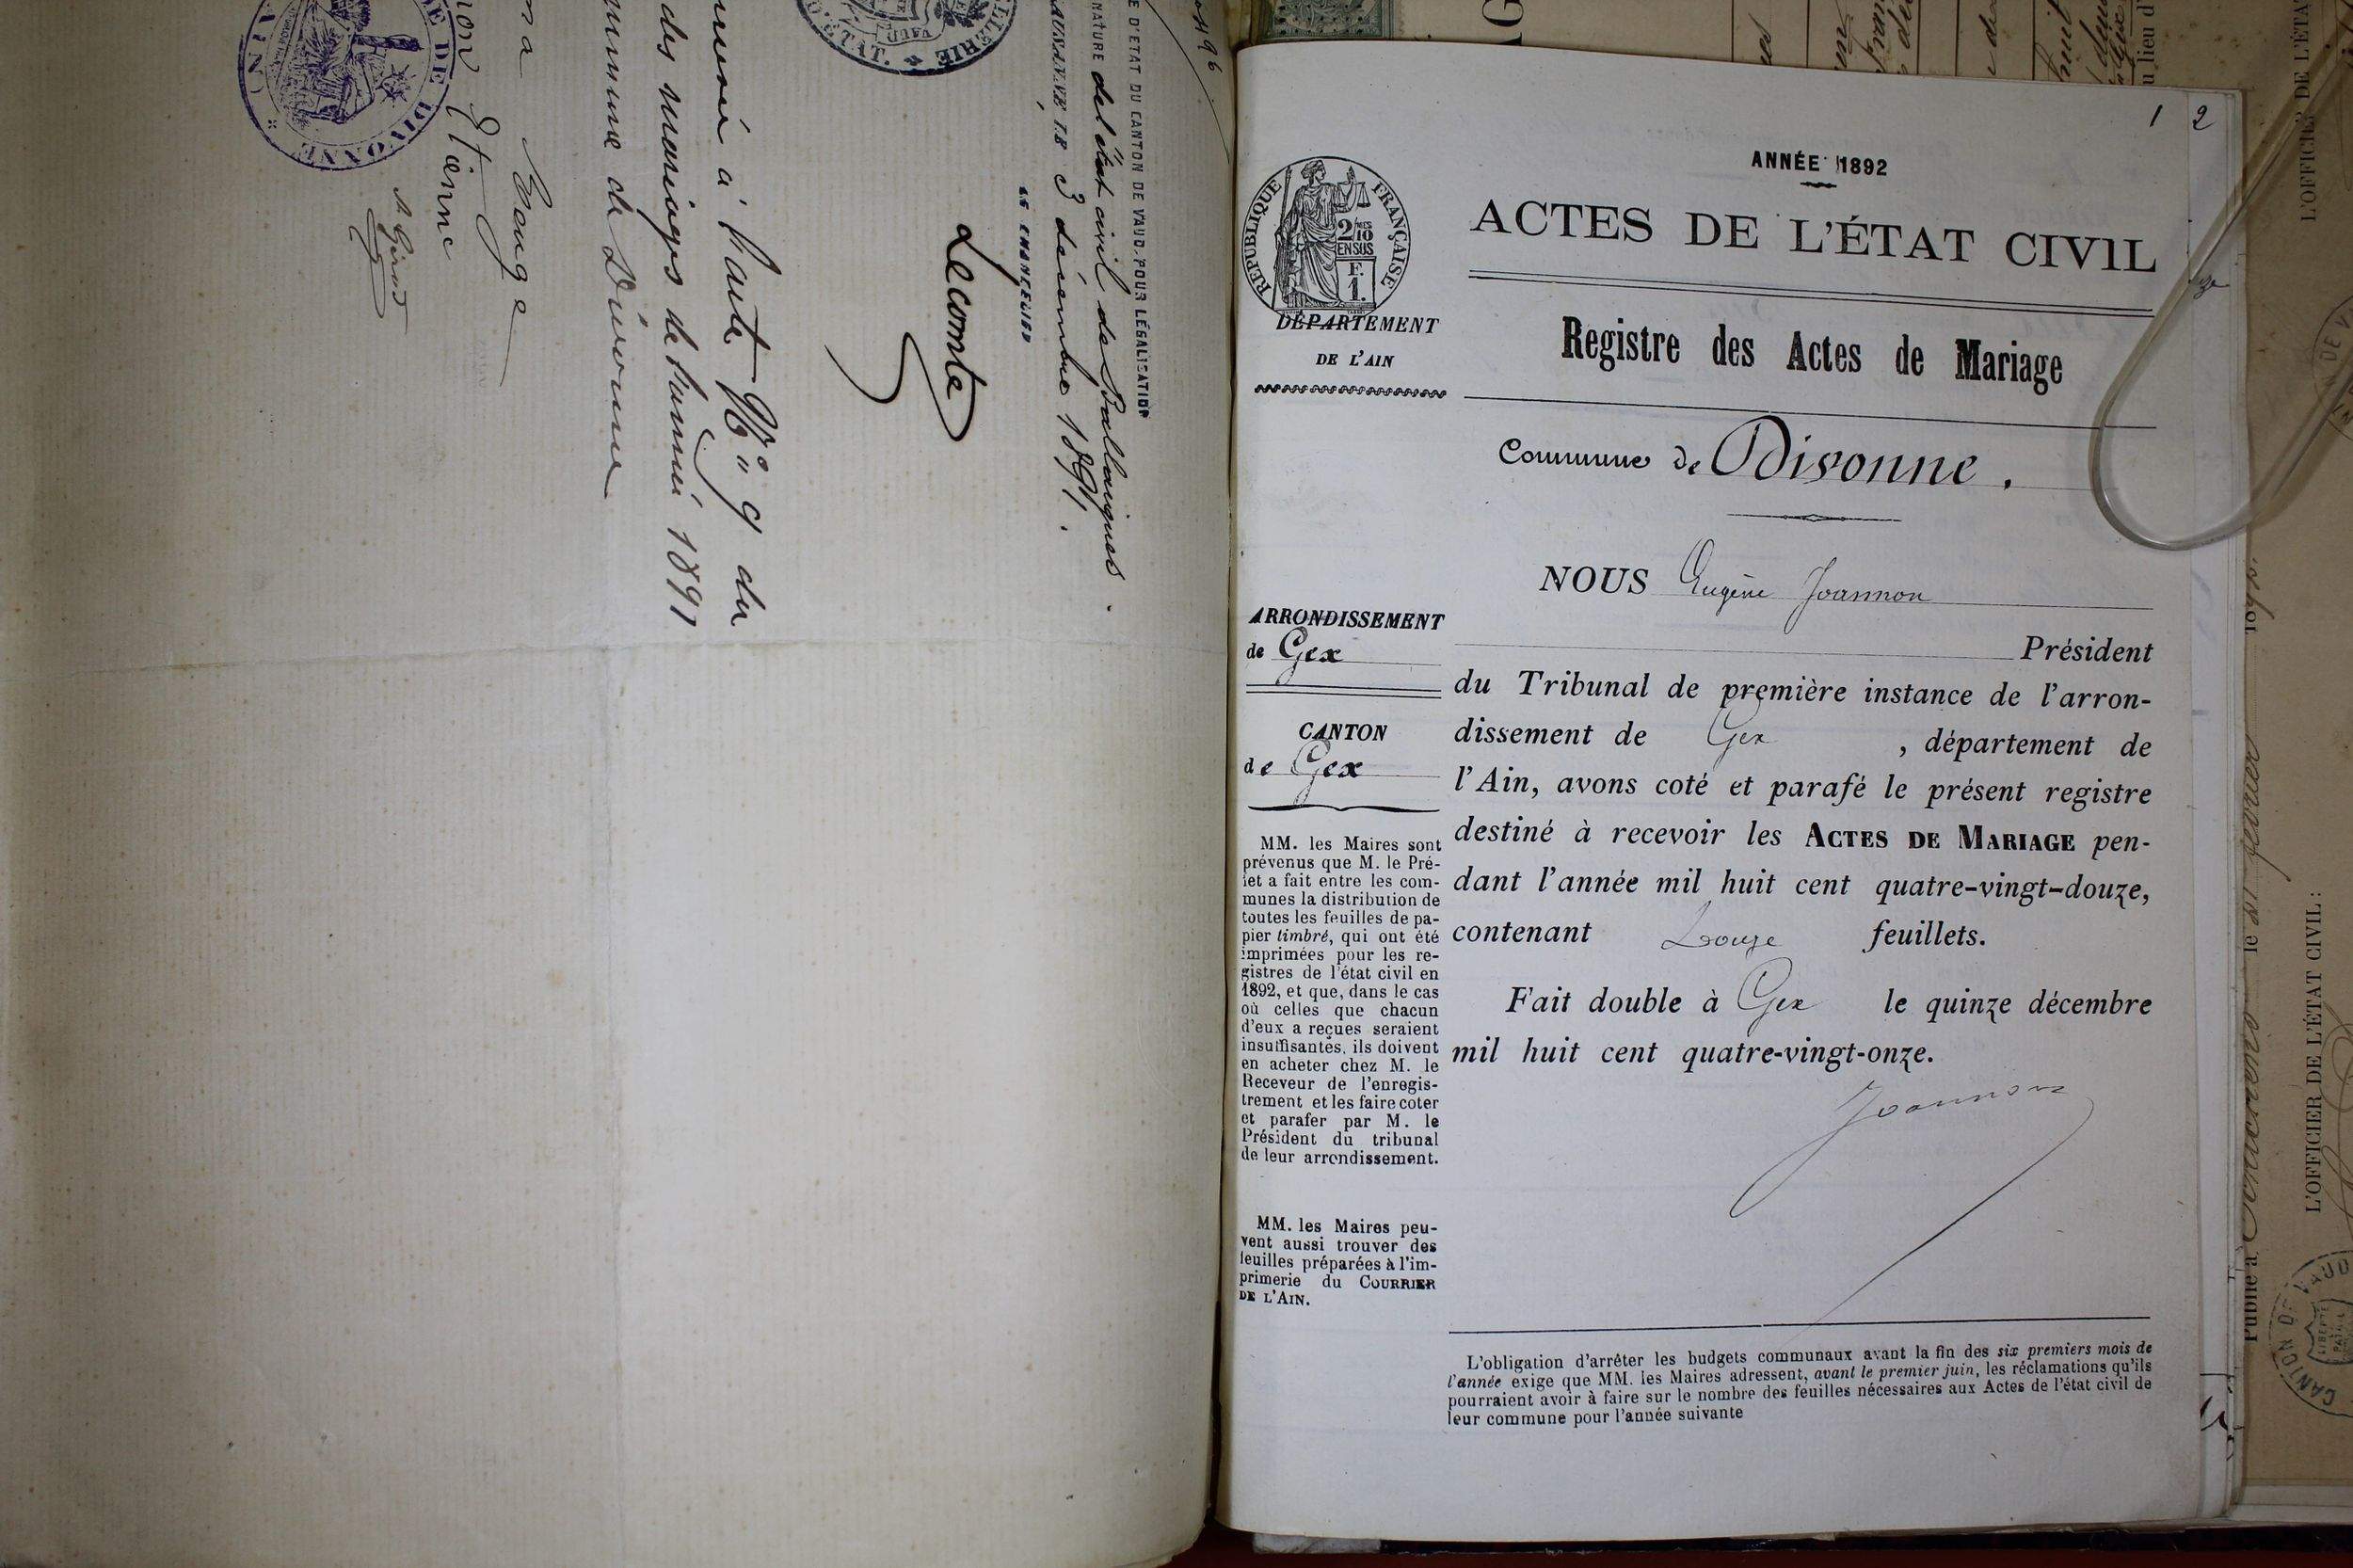 E D'ETAT DU CANTON DE VAUD. POUR LÉGALISATION
NATURE de l'état civil de Ballaigues.
3 décembre 1891.
LE CHANCELIER
Lecomte
à l'acte N° 9 du
des mariages de l'année 1891
de Divonne
Rouge
Etienne
1 2
ANNÉE 1892
ACTES DE L'ÉTAT CIVIL
RÉPUBLIQUE FRANÇAISE
2/10
EN SUS
F.
1.
DÉPARTEMENT
DE L'AIN
Registre des Actes de Mariage
Commune de Divonne.
NOUS Eugène Joannon
Président
du Tribunal de première instance de l'arron-
dissement de Gex , département de
l'Ain, avons coté et parafé le présent registre
destiné à recevoir les ACTES DE MARIAGE pen-
dant l'année mil huit cent quatre-vingt-douze,
contenant Douze feuillets.
Fait double à Gex le quinze décembre
mil huit cent quatre-vingt-onze.
Joannon
ARRONDISSEMENT
de Gex
CANTON
de Gex
MM. les Maires sont
prévenus que M. le Pré-
fet a fait entre les com-
munes la distribution de
toutes les feuilles de pa-
pier timbré, qui ont été
imprimées pour les re-
gistres de l'état civil en
1892, et que, dans le cas
où celles que chacun
d'eux a reçues seraient
insuffisantes, ils doivent
en acheter chez M. le
Receveur de l'enregis-
trement et les faire coter
et parafer par M. le
Président du tribunal
de leur arrondissement.
MM. les Maires peu-
vent aussi trouver des
feuilles préparées à l'im-
primerie du COURRIER
DE L'AIN.
L'obligation d'arrêter les budgets communaux avant la fin des six premiers mois de
l'année exige que MM. les Maires adressent, avant le premier juin, les réclamations qu'ils
pourraient avoir à faire sur le nombre des feuilles nécessaires aux Actes de l'état civil de
leur commune pour l'année suivante
L'OFFICIER DE L'ÉTAT
L'OFFICIER DE L'ÉTAT CIVIL :
Publié à
CANTON DE VAUD
LIBERTÉ
PATRIE